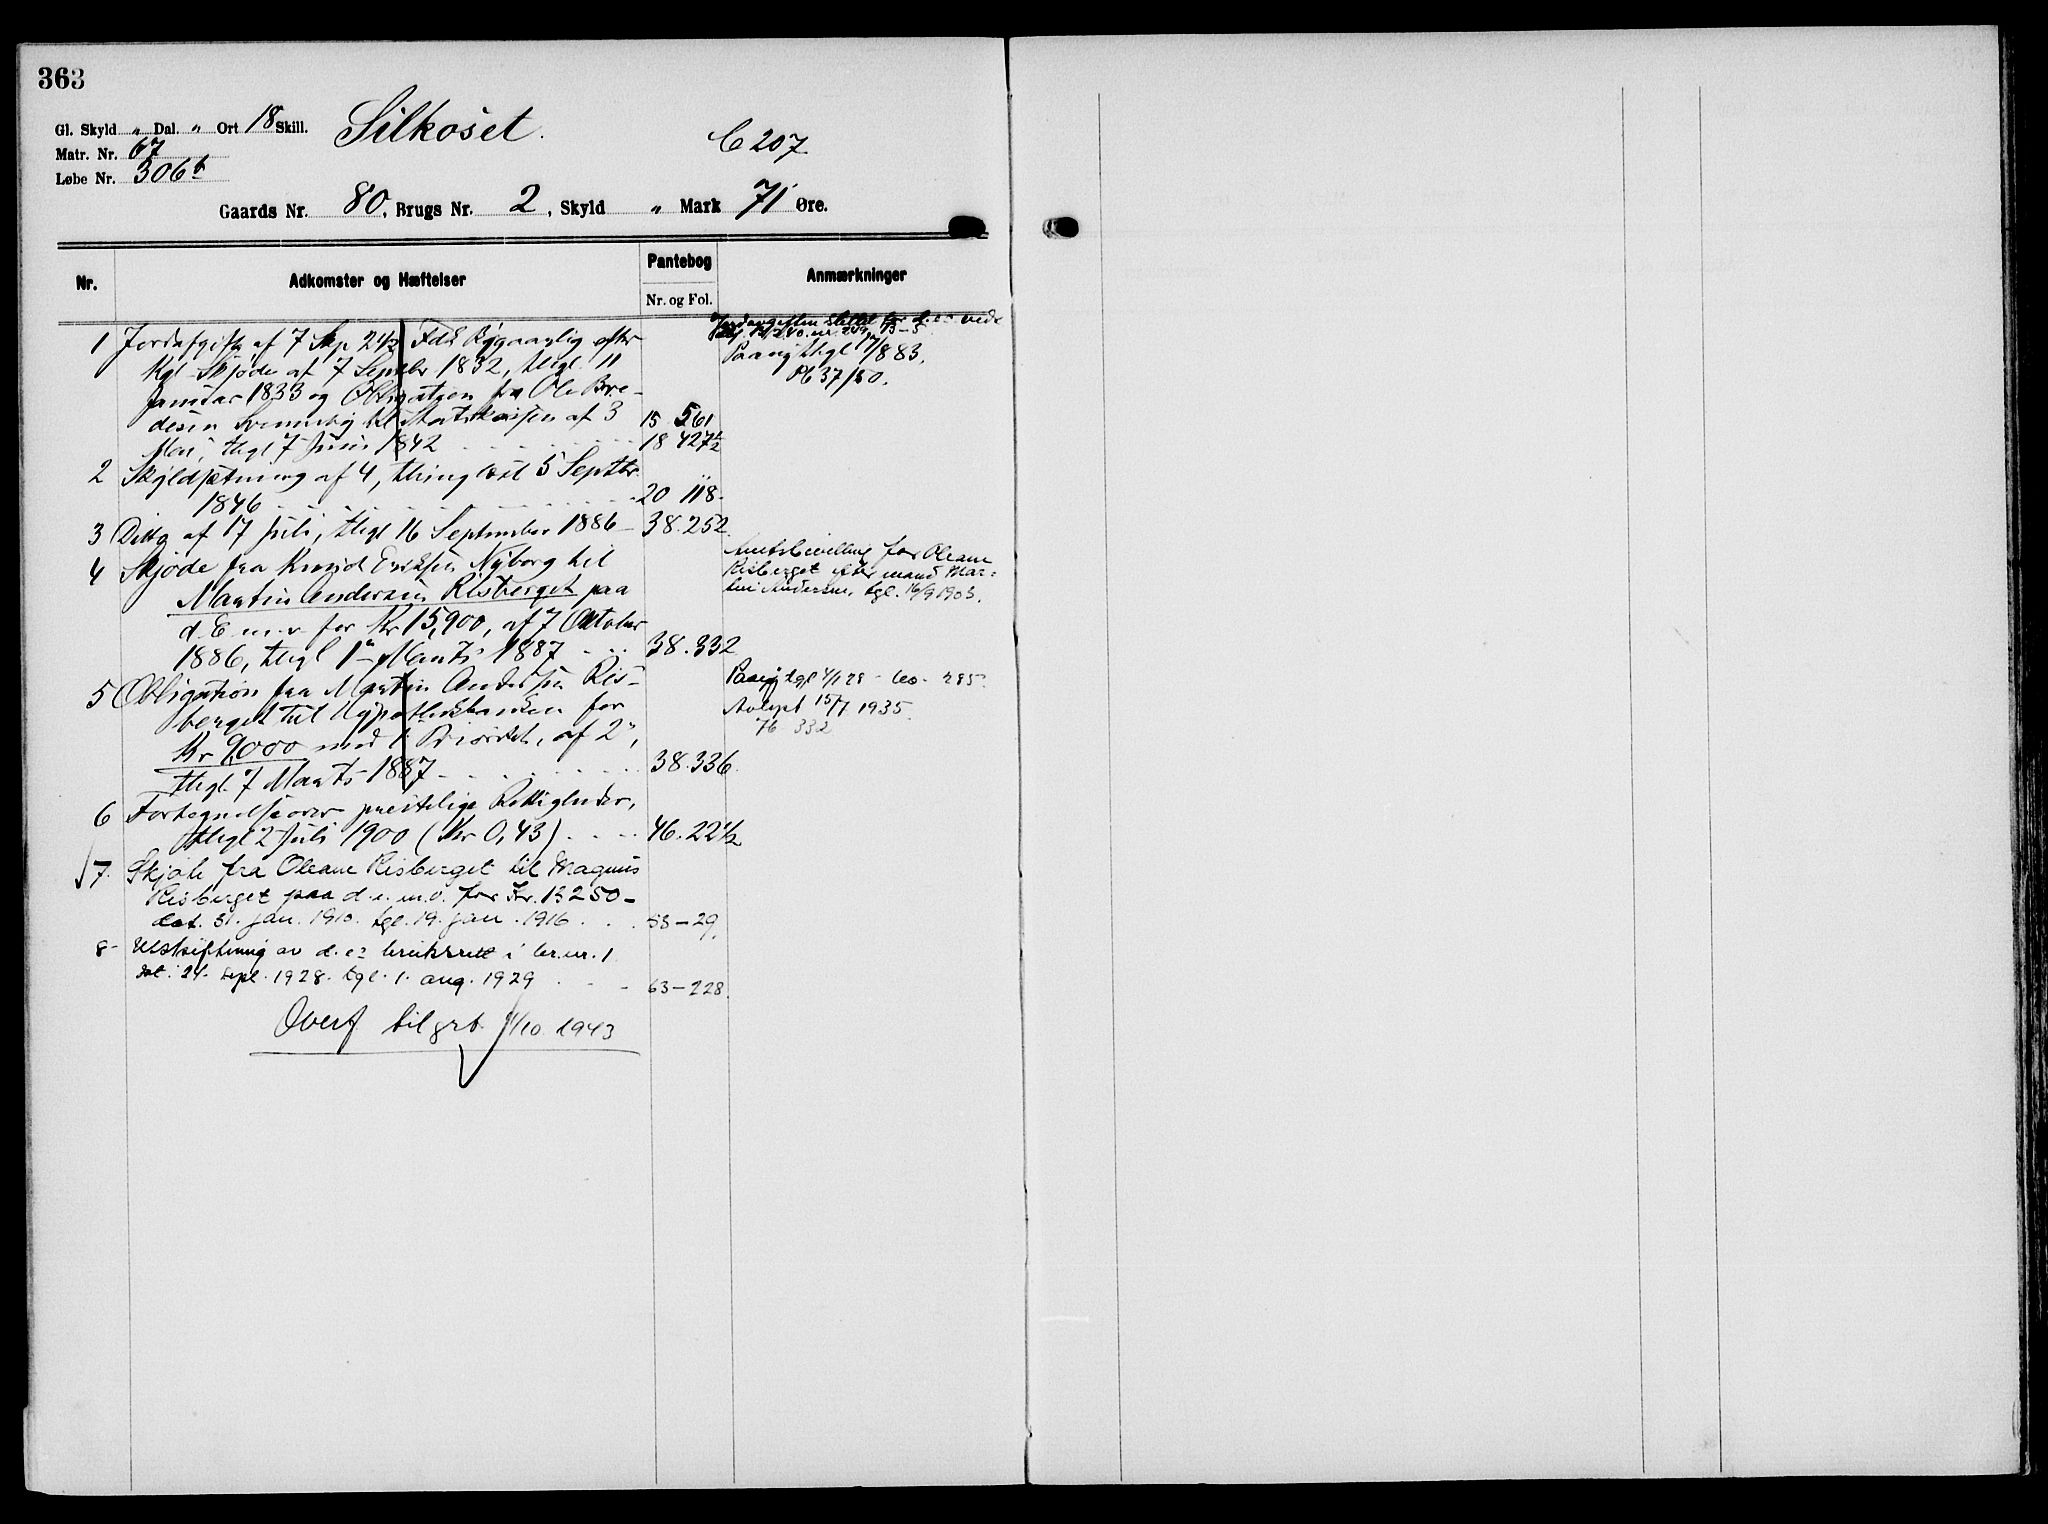 363
Gl. Skyld " Dal. " Ort 18 Skill.
Silkoset.
C 207.
Matr. Nr. 67
Løbe Nr. 306b
Gaards Nr. 80, Brugs Nr. 2, Skyld " Mark 71 Øre.
Nr.
Adkomster og Hæftelser
Pantebog
Nr. og Fol.
Anmærkninger
1 Jordafgift af 7 Skp 2 1/2 Fdk Bygaarlig efter
Kgl. Skjøde af 7 Septbr 1832, thgl. 11
Januar 1833 og Obligation fra Ole Bre-
desen Svenneby til Statskassen af 3 15 561
Mai, thgl 7 Juni 1842 18 427 1/2
Jordavgiften slettet for d. e. vide
Paany thgl 17/8 83.
Pb 37/80.
2 Skyldsætning af 4, thinglæst 5 Septbr.
1846 20 118
3 Ditto af 17 Juli, thgl 16 September 1886 38.252.
4 Skjøde fra Eriksen Nyborg til
Martin Andersen Risberget paa
d. E. m. v. for Kr 15,900, af 7 Oktober
1886, thgl 1ste Marts 1887 38.332
Amtsbevilling for Oleane
Risberget efter mand Mar-
tin Andersen, tgl. 16/9 1903.
5 Obligation fra Martin Andersen Ris-
berget til Hypothekbanken for
Kr 9000 med 1 Prioritet, af 2",
thgl. 7 Marts 1887 38.336.
Paany tgl 4/1 28 - 60 - 285.
Avlyst 15/7 1935.
76 332
6 Fortegnelse over prestelige Rettigheder,
thgl 2 Juli 1900 (Kr 0,43) 46.22 1/2
7. Skjøte fra Oleane Risberget til Magnus
Risberget paa d. e. m. v. for Kr. 13250 -
dat. 31. jan. 1910. tgl. 19. jan. 1916 53-29.
8- Utskiftning av d. e.s bruksrett i br.nr. 1
dat. 24. sept. 1928. tgl. 1. aug. 1929 63-228.
Overf til grb. 1/10 1943